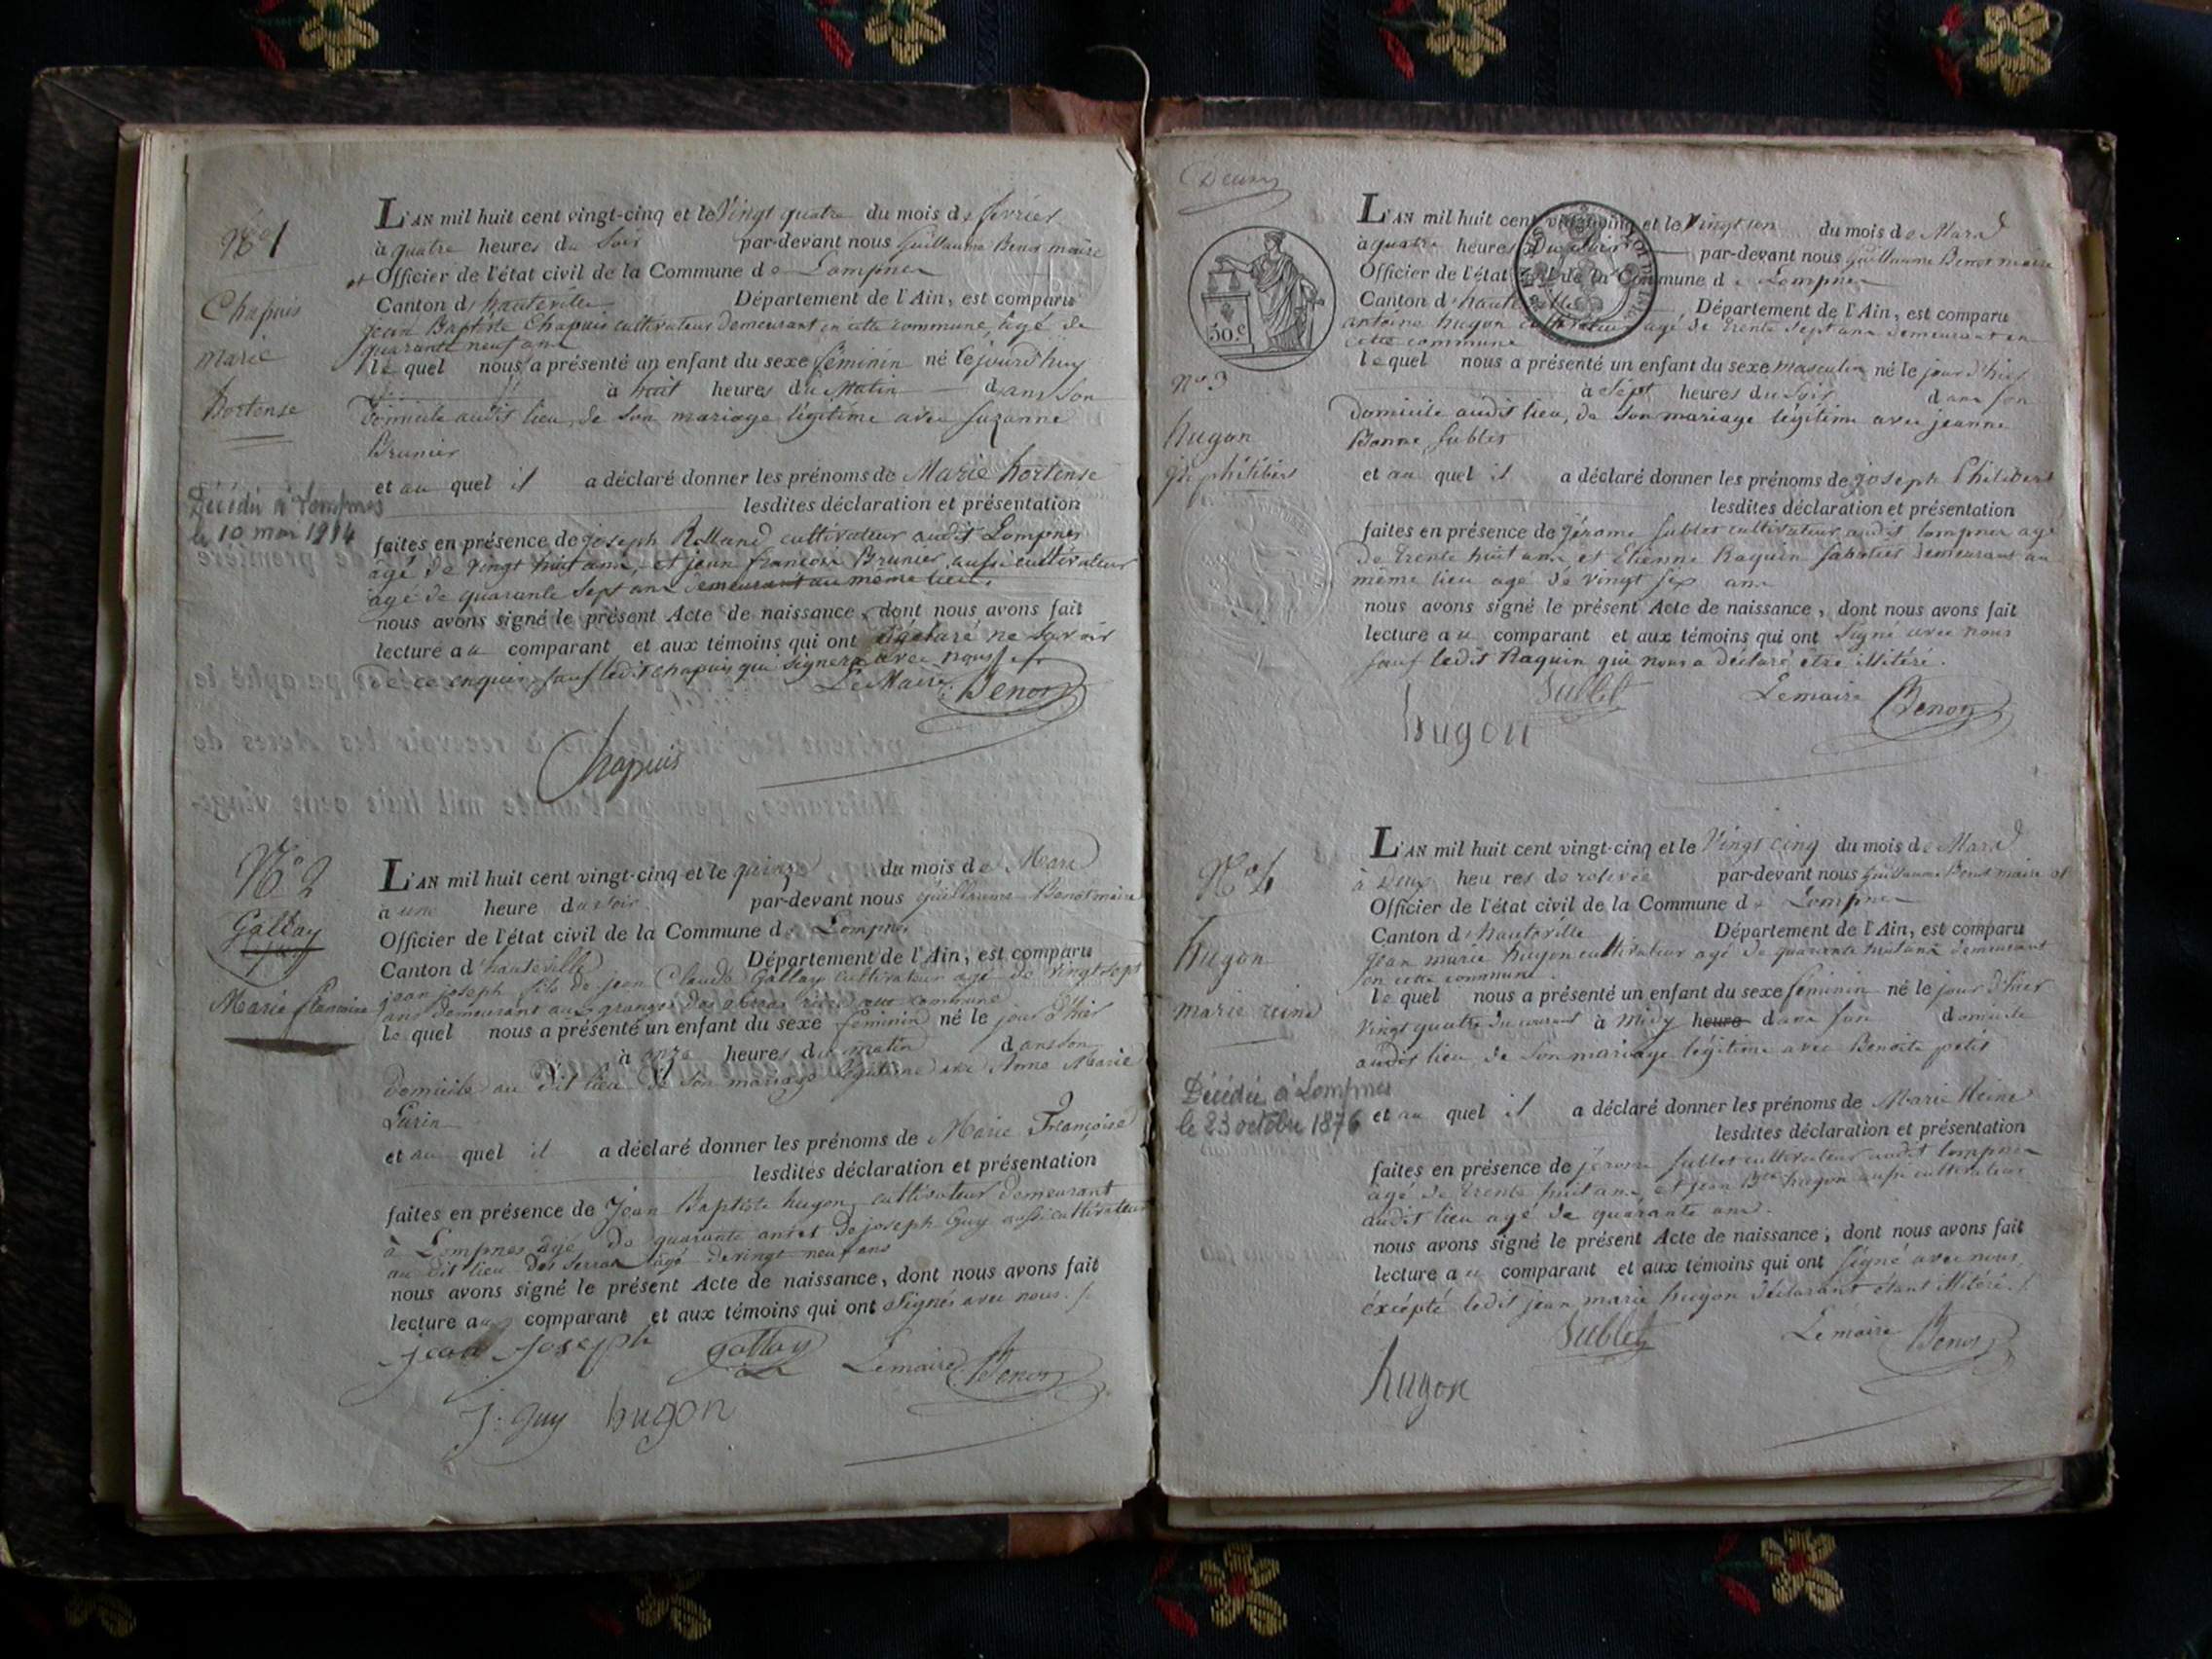 N° 1
Chapuis
marie
hortense
Décédée à Lompnes
le 10 mai 1914
L'AN mil huit cent vingt-cinq et le vingt quatre du mois de février
à quatre heures du soir par-devant nous Guillaume Benor maire
et Officier de l'état civil de la Commune de Lompnes
Canton d'hauteville Département de l'Ain, est comparu
jean Baptiste Chapuis cultivateur demeurant en cette commune, agé de
quarante neuf ans
lequel nous a présenté un enfant du sexe féminin né le jourd'huy
à huit heures du Matin dans son
domicile audit lieu, de son mariage légitime avec suzanne
Brunier
et au quel il a déclaré donner les prénoms de Marie hortense
lesdites déclaration et présentation
faites en présence de joseph Rolland cultivateur audit Lompnes
agé de vingt huit ans, et jean françois Brunier aussi cultivateur
agé de quarante sept ans demeurant au même lieu.
nous avons signé le présent Acte de naissance, dont nous avons fait
lecture au comparant et aux témoins qui ont déclaré ne savoir
de ce enquis, sauf ledit chapuis qui signera avec nous
Le Maire Benor
Chapuis
N° 2
Gallay
Marie françoise
L'AN mil huit cent vingt-cinq et le quinze du mois de Mars
à une heure du soir par-devant nous Guillaume Benor maire
Officier de l'état civil de la Commune de Lompnes
Canton d'hauteville Département de l'Ain, est comparu
jean joseph fils de jean Claude Gallay cultivateur agé de vingt sept
ans demeurant aux granges des commune
lequel nous a présenté un enfant du sexe féminin né le jour d'hier
à onze heures du matin dans son
domicile au dit lieu de son mariage légitime avec Anne Marie
Lurin
et au quel il a déclaré donner les prénoms de Marie Françoise
lesdites déclaration et présentation
faites en présence de Jean Baptiste hugon, cultivateur demeurant
à Lompnes agé de quarante ans et de joseph Guy aussi cultivateur
au dit lieu des agé de vingt neuf ans
nous avons signé le présent Acte de naissance, dont nous avons fait
lecture au comparant et aux témoins qui ont signés avec nous.
jean joseph gallay Lemaire Benor
j. guy hugon
50 c
n° 3
hugon
jph philibert
L'AN mil huit cent vingt-cinq et le vingt un du mois de Mars
à quatre heures du soir par-devant nous Guillaume Benor maire
Officier de l'état civil de la Commune de Lompnes
Canton d'hauteville Département de l'Ain, est comparu
antoine hugon cultivateur agé de trente sept ans demeurant en
cette commune
lequel nous a présenté un enfant du sexe masculin né le jour d'hier
à sept heures du soir dans son
domicile audit lieu, de son mariage légitime avec jeanne
Bonne Sublet
et au quel il a déclaré donner les prénoms de joseph Philibert
lesdites déclaration et présentation
faites en présence de jérome Sublet cultivateur audit lompnes agé
de trente huit ans et Etienne Raquin sabotier demeurant au
même lieu agé de vingt six ans
nous avons signé le présent Acte de naissance, dont nous avons fait
lecture au comparant et aux témoins qui ont signé avec nous
sauf ledit Raquin qui nous a déclaré être illitéré.
Sublet Lemaire Benor
hugon
N° 4
hugon
marie reine
Décédée à Lompnes
le 23 octobre 1876
L'AN mil huit cent vingt-cinq et le vingt cinq du mois de Mars
à deux heures de relevée par-devant nous Guillaume Benor maire et
Officier de l'état civil de la Commune de Lompnes
Canton d'hauteville Département de l'Ain, est comparu
jean marie hugon cultivateur agé de quarante huit ans demeurant
en cette commune
lequel nous a présenté un enfant du sexe féminin né le jour d'hier
vingt quatre du courant à midy heure dans son domicile
audit lieu, de son mariage légitime avec Benoite petit
et au quel il a déclaré donner les prénoms de Marie Reine
lesdites déclaration et présentation
faites en présence de jérome Sublet cultivateur audit lompnes
agé de trente huit ans, et jean Bte hugon aussi cultivateur
audit lieu agé de quarante ans.
nous avons signé le présent Acte de naissance; dont nous avons fait
lecture au comparant et aux témoins qui ont signé avec nous,
éxcépté ledit jean marie hugon déclarant étant illitéré.
Sublet Lemaire Benor
hugon